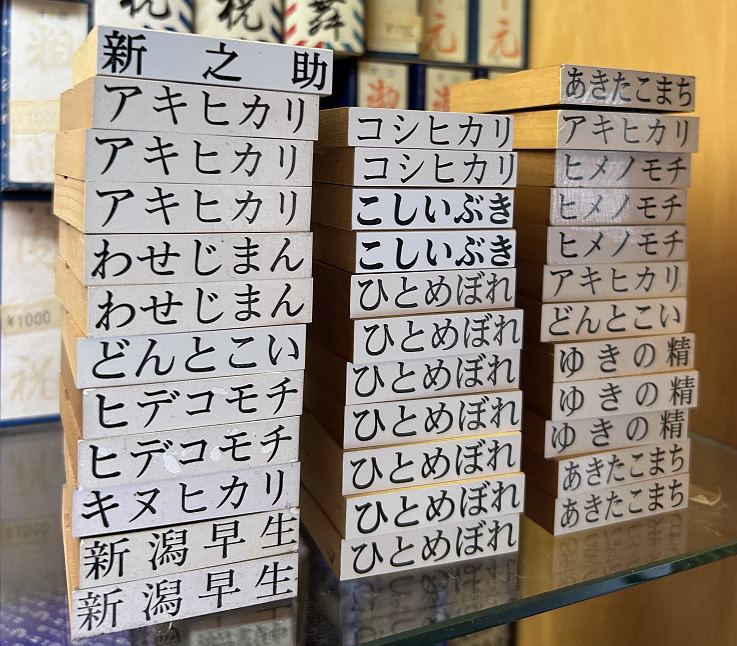 新之助
アキヒカリ
アキヒカリ
アキヒカリ
わせじまん
わせじまん
どんとこい
ヒデコモチ
ヒデコモチ
キヌヒカリ
新潟早生
新潟早生
コシヒカリ
コシヒカリ
こしいぶき
こしいぶき
ひとめぼれ
ひとめぼれ
ひとめぼれ
ひとめぼれ
ひとめぼれ
ひとめぼれ
ひとめぼれ
あきたこまち
アキヒカリ
ヒメノモチ
ヒメノモチ
ヒメノモチ
アキヒカリ
どんとこい
ゆきの精
ゆきの精
ゆきの精
あきたこまち
あきたこまち
祝
祝
舞
元
元
¥1000
祝